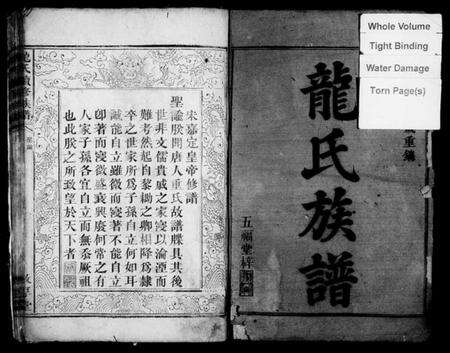 Whole Volume
Tight Binding
Water Damage
Torn Page(s)
重鐫
龍氏族譜
五福堂梓
宋嘉定皇帝修譜
聖諭朕聞唐人重氏故譜牒具其後
世非文儒貴戚之家寖以淪湮而
難考然起自黎鋤之卿相降為隸
卒之世家所為子孫自立何如耳
誠能自立雖微而寖著不能自立
卽著而寖微盛衰興廢何常之有
人家子孫各宜自立而無忝厥祖
也此朕之所致望於天下者